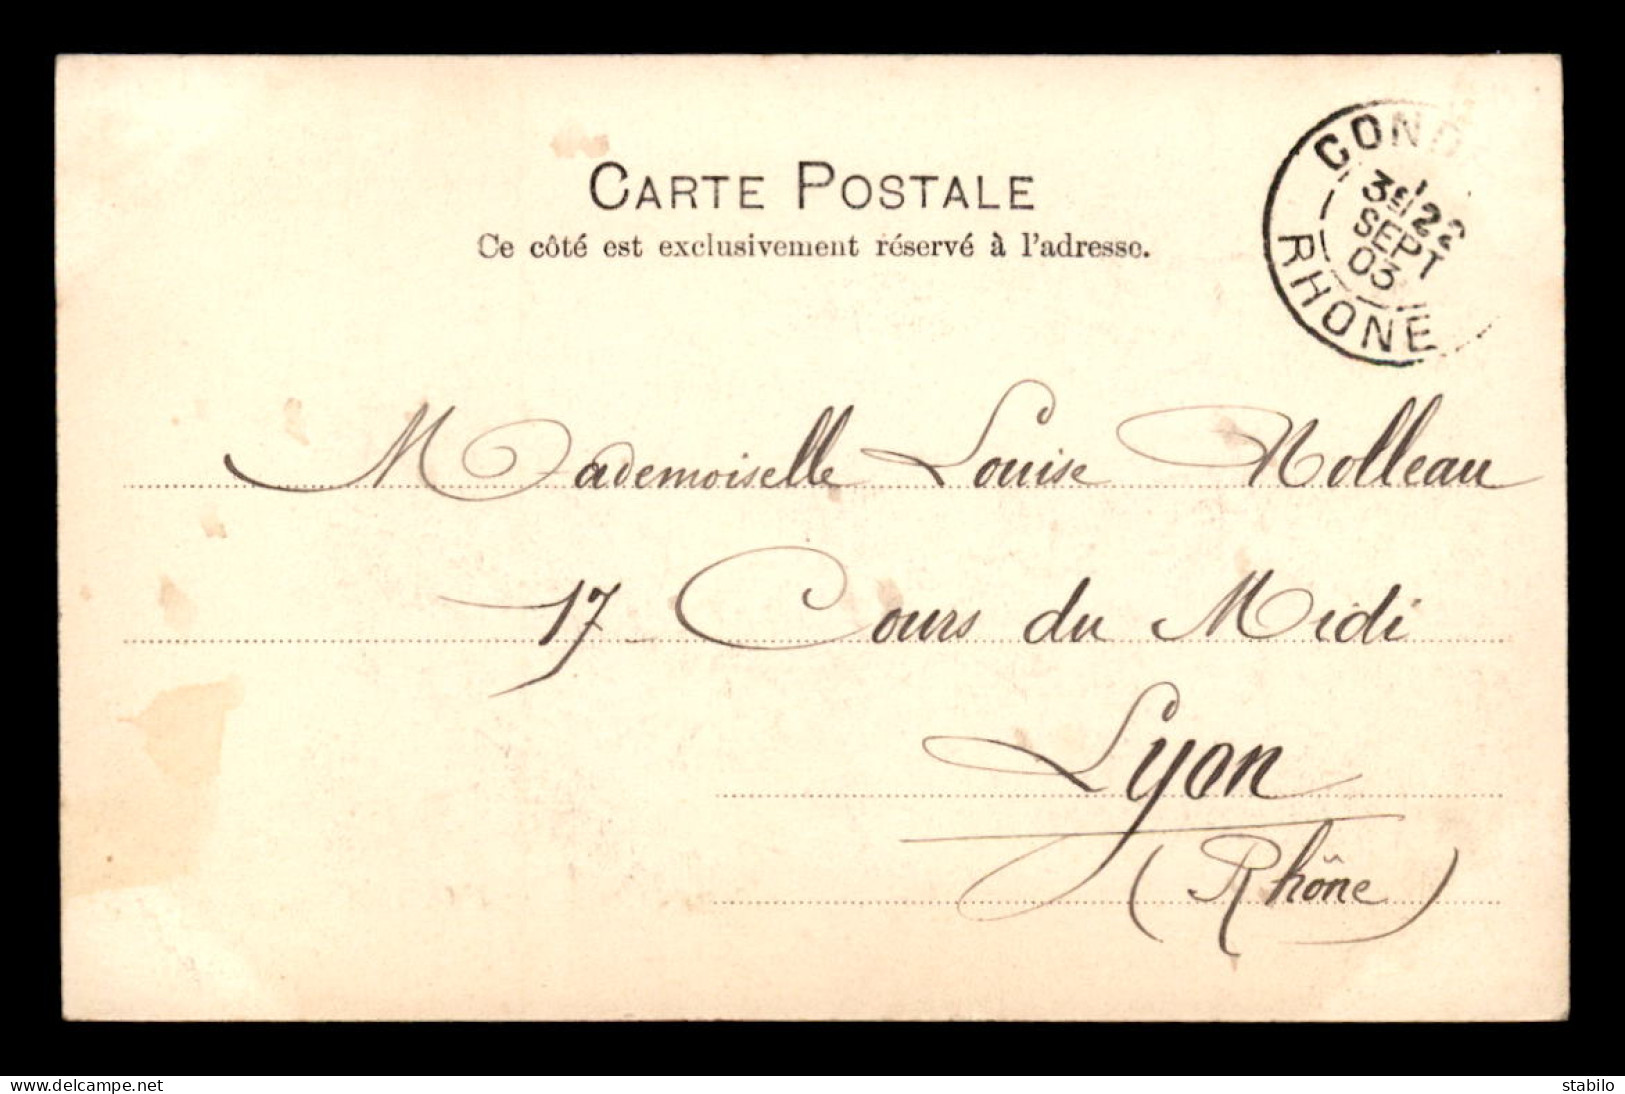 CARTE POSTALE
Ce côté est exclusivement réservé à l'adresse.
COND
3E 22
SEPT
03
RHONE
Mademoiselle Louise Nolleau
17 Cours du Midi
Lyon
(Rhône)
www.delcampe.net
stabilo